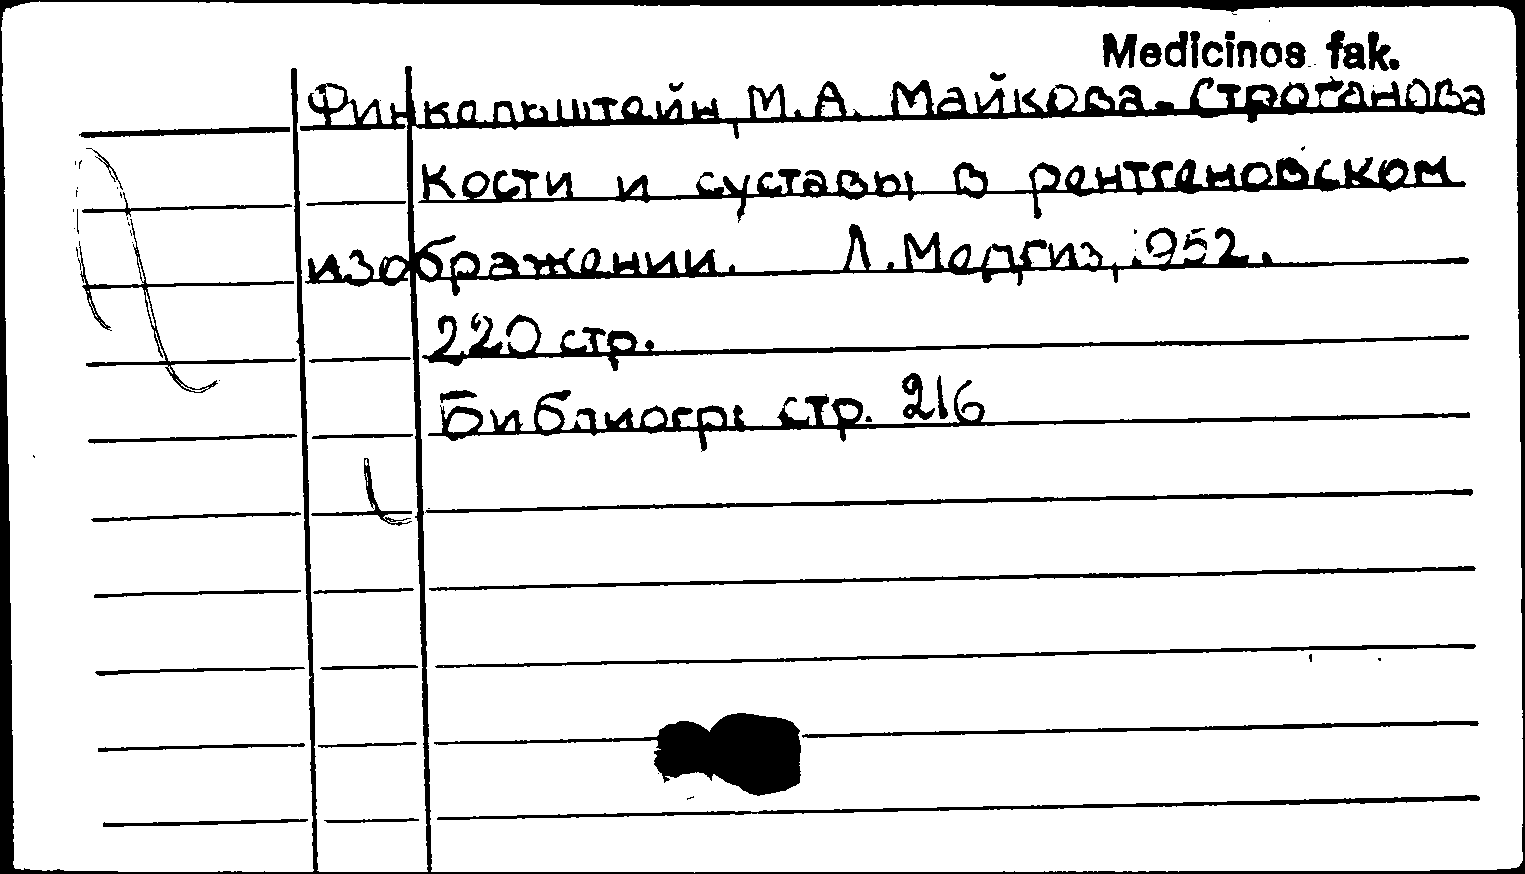 Medicinos fak.
Финкельштейн, М.А. Майкова-Строганова
Кости и суставы в рентгеновском
изображении. Л. Медгиз, 1952.
220 стр.
Библиогр: стр. 216